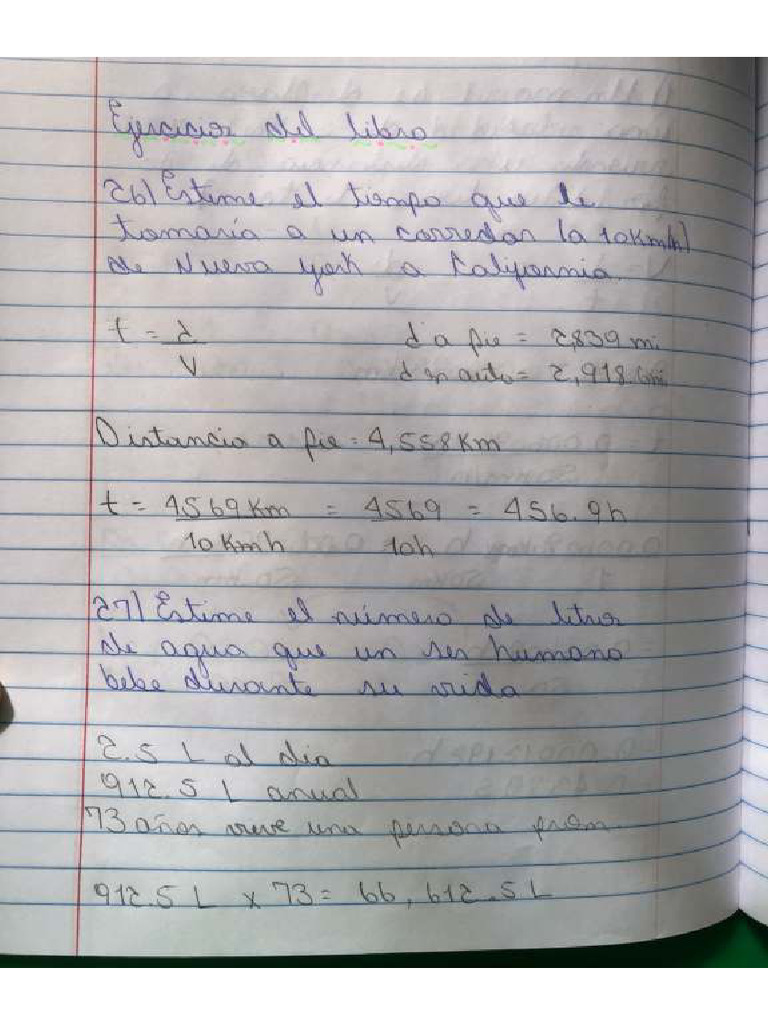 Ejercicios del libro
26) Estime el tiempo que le
tomaría a un corredor (a 10 Km/h)
de Nueva York a California.
t = d / V
d a pie = 2,839 mi
d en auto = 2,918.6 mi
Distancia a pie = 4,558 Km
t = 4569 Km / 10 Kmh = 4569 / 10h = 456.9h
27) Estime el número de litros
de agua que un ser humano
bebe durante su vida
2.5 L al dia
912.5 L anual
73 años vive una persona prom
912.5 L x 73 = 66,612.5 L